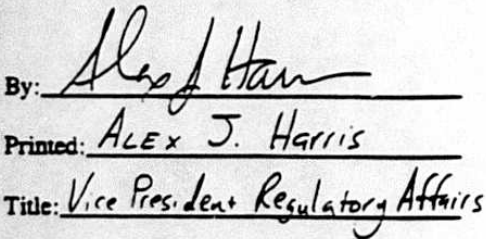 By: Alex J Harris
Printed: ALEX J. Harris
Title: Vice President Regulatory Affairs